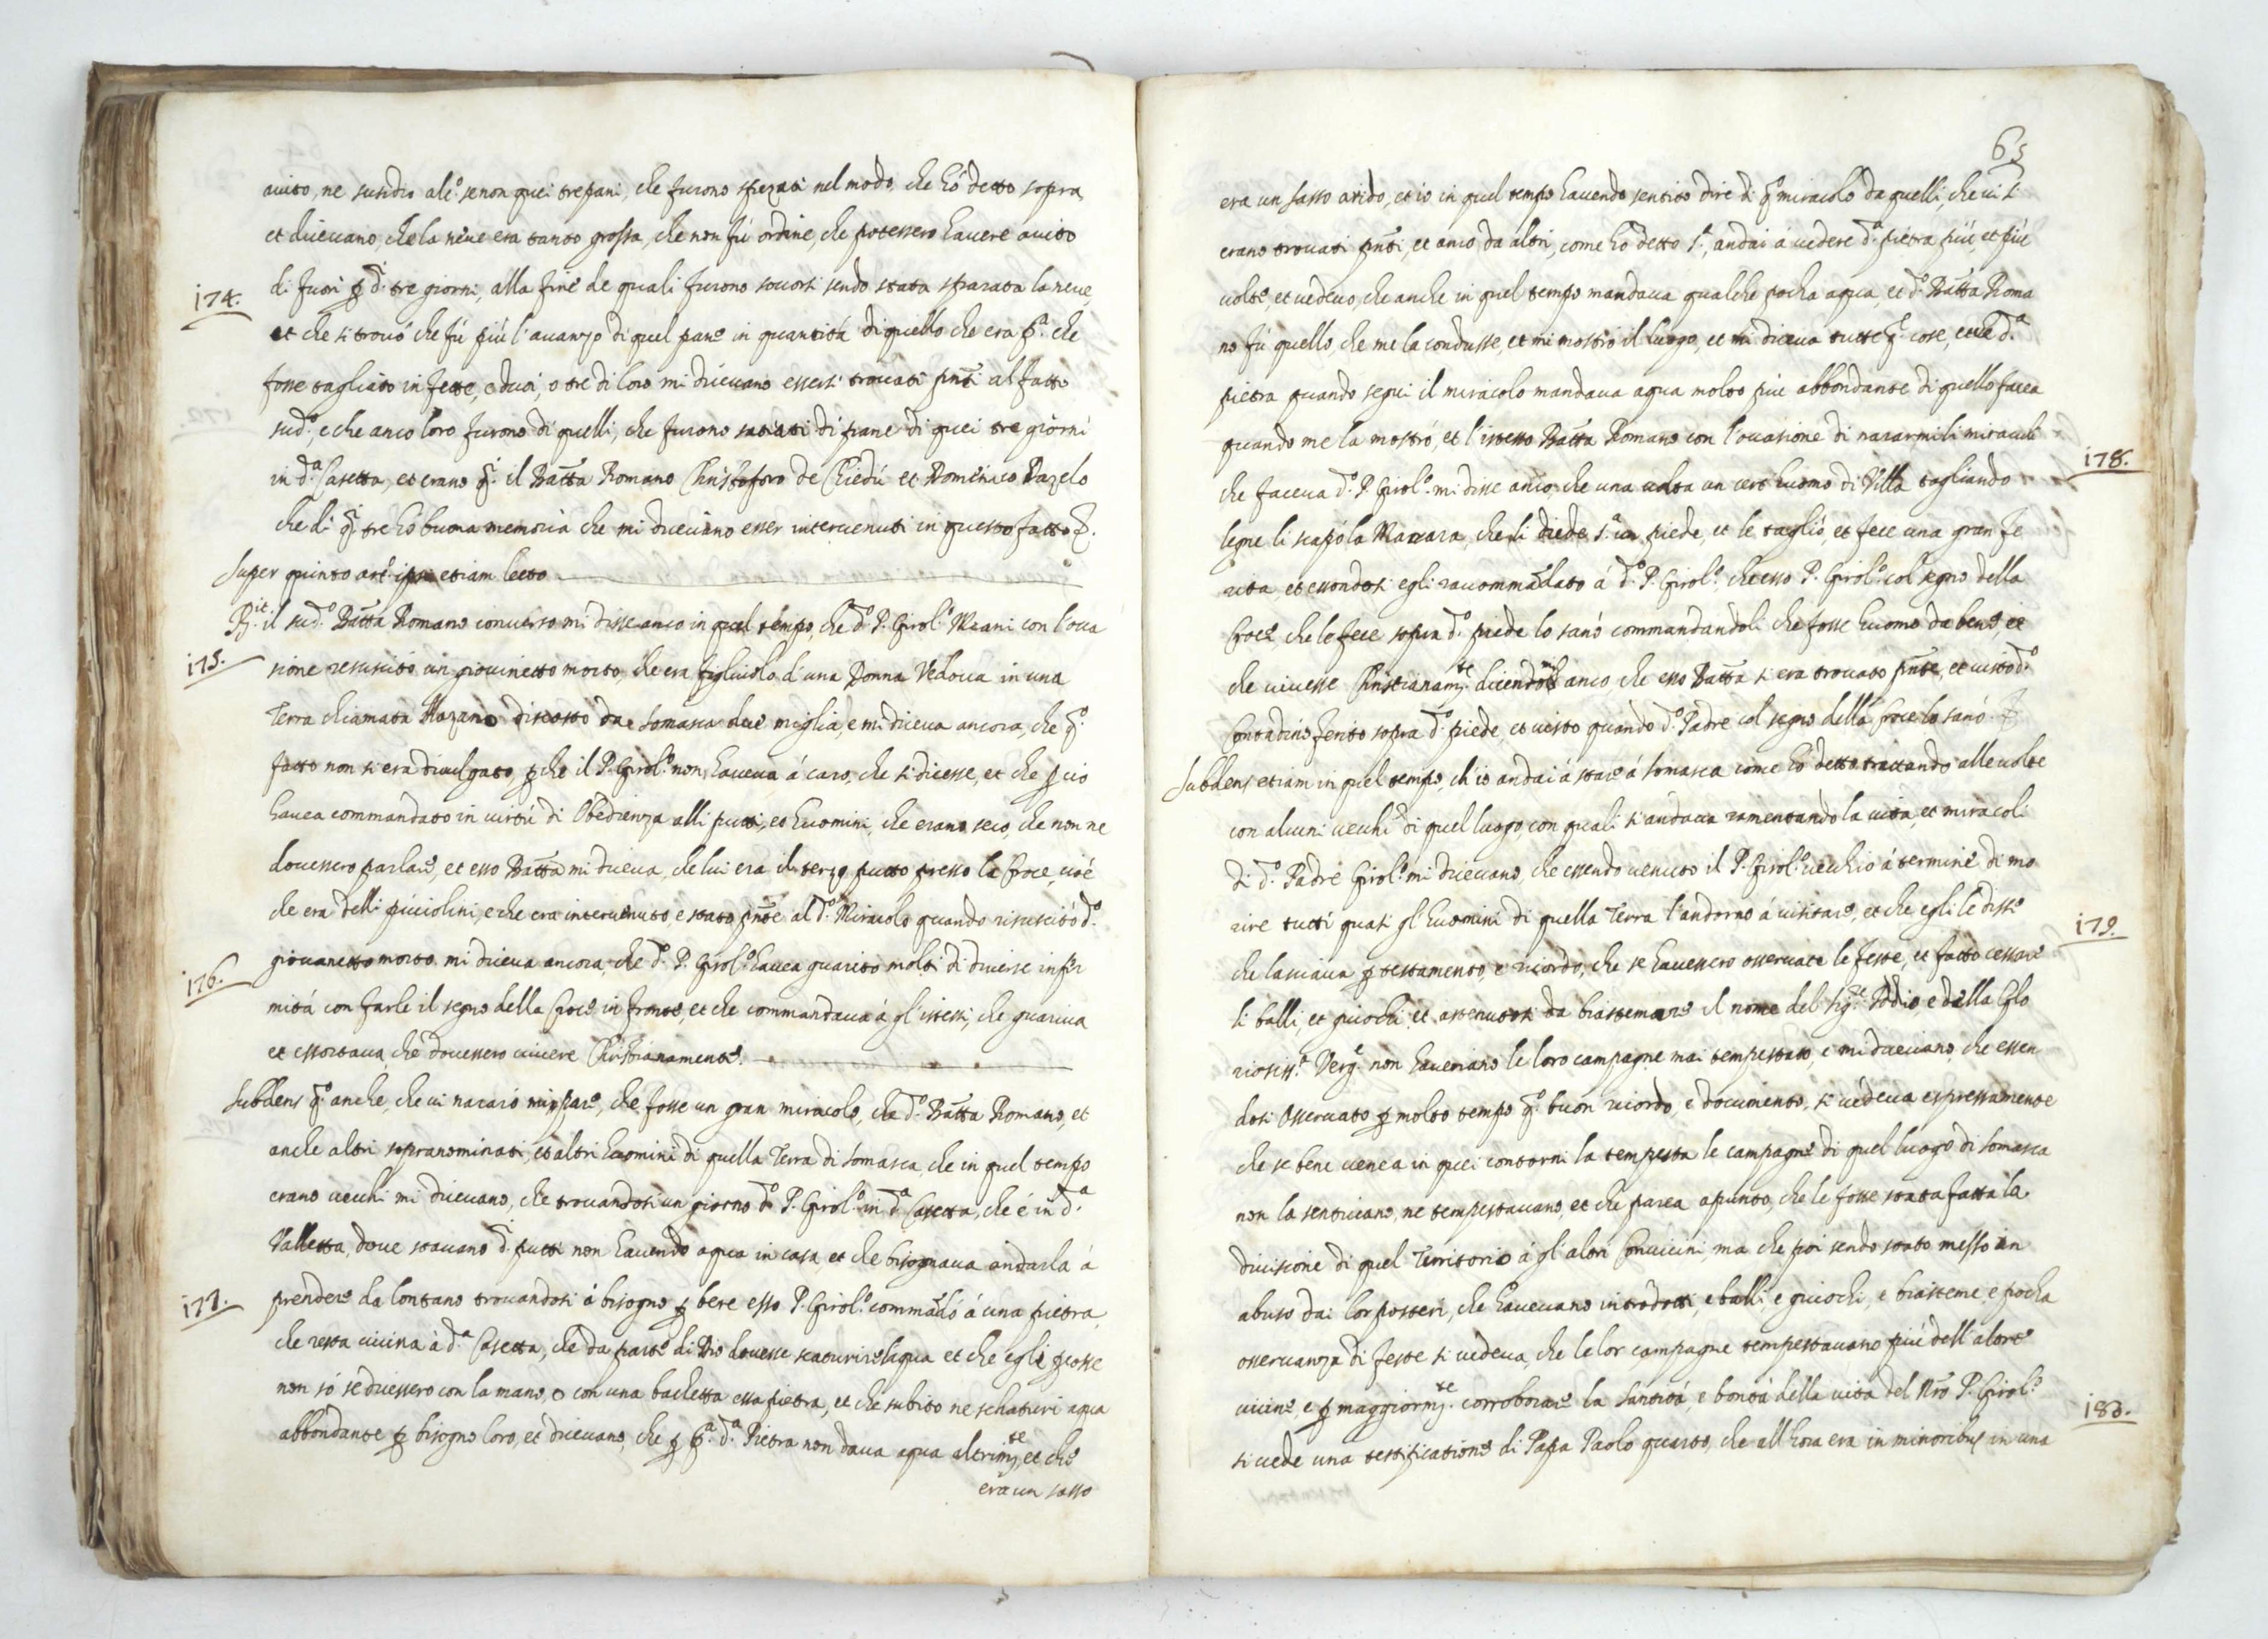 aiuto, ne susidio alc.º se non quei tre pani, che furono spezzati nel modo, che hó detto sopra,
et diceuano, che la neue era tanto grossa, che non fú ordine, che potessero hauere aiuto
174.
di fuori ꝑ d.i tre giorni, alla fine de quali furono socorsi sendo stata sparata la neue,
et che si trouó che fú piú l'auanzo di quel pane in quantitá di quello che era p.ª che
fosse tagliato in fette, e duoi, o tre di loro mi diceuano essersi trouati pnti al fatto
sud.º, e che anco loro furono di quelli, che furono satiati di pane di quei tre giorni
in d.ª Casetta, et erano q.i il Batta Romano Christoforo de Chiedú et Domenico Bazelo
che di q.i tre hó buona memoria che mi diceuano esser interuenuti in questo fatto
Super quinto art.º ipsi etiam lecto
R.it il sud.º Batta Romano conuerso mi disse anco in quel tempo, che d.º P. Girol.º Miani con l'oca
175.
sione resuscitó un giouinetto morto, che era figliuolo d'una Donna Vedoua in una
Terra chiamata Olazano discosto da Somasca due miglia, e mi diceua ancora, che q.º
fatto non si era diuulgato, ꝑche il P. Girol.º non haueua á caro, che si dicesse, et che ꝑ cio
hauea commandato in uirtú di Obedienza alli putti, et huomini, che erano seco, che non ne
douessero parlare, et esso Batta mi diceua, che lui era il terzo putto presso la Croce, cioé
che era delli picciolini, e che era interuenuto, e stato pnte al d.º Miracolo quando risuscitó d.º
176.
giouanetto morto, mi diceua ancora, che d.º P. Girol.º hauea guarito molti di diuerse infir
mitá con farle il segno della Croce in fronte, et che commandaua á gl'istessi, che guariua
et essortaua che douessero uiuere Christianamente.
Subdens q.º anche, che ui nararó mi pare, che fosse un gran miracolo, che d.º Batta Romano, et
anche altri sopranominati, et altri huomini di quella Terra di Somasca, che in quel tempo
erano uecchi mi diceuano, che trouandosi un giorno d.º P. Girol.º in d.ª Casetta, che é in d.ª
Valletta, doue stauano d.i putti non hauendo aqua in casa, et che bisognaua andarla á
177.
prendere da lontano trouandosi á bisogno ꝑ bere esso P. Girol.º commãdó á una pietra,
che resta uicina á d.ª Casetta, che da parte di Dio douesse scaturire l'aqua et che egli ꝑcosse
non só se dicessero con la mano, o con una bachetta essa pietra, et che subito ne schaturi aqua
abbondante ꝑ bisogno loro, et diceuano, che ꝑ p.ª d.ª Pietra non daua aqua altrim.te, et che
era un sasso
65
era un sasso arido, et io in quel tempo hauendo sentito dire di q.º miracolo da quelli, che ui si
erano trouati pnti, et anco da altri, come hó detto s.ª, andai á uedere d.ª pietra piú, et piú
uolte, et uedeuo, che anche in quel tempo mandaua qualche pocha aqua, et d.º Batta Roma
no fú quello, che me la condusse, et mi mostró il luogo, et mi diceua tutte q.e cose, et che d.ª
pietra quando segui il miracolo mandaua aqua molto piu abbondante di quello facea
quando me la mostró, et l'istesso Batta Romano con l'ocasione di nararmi li miracoli
178.
che faceua d.º P. Girol.º mi disse anco, che una uolta un certo huomo di Villa tagliando
legne li scapó la Manara, che li diede s.ª un piede, et le taglió, et fece una gran fe
rita et essendosi egli racommãdato á d.º P. Girol.º, che esso P. Girol.º col segno della
Croce, che le fece sopra d.º piede lo sanó commandandoli che fosse huomo da bene, et
che uiuesse Christianam.te dicendomi anco che esso Batta si era trouato pnte, et uisto d.º
Contadino ferito sopra d.º piede, et uisto quando d.º Padre col segno della Croce lo sanó
Subdens etiam in quel tempo, ch'io andai á stare á Somasca come hó detto trattando alle uolte
con alcuni uecchi di quel luogo, con quali si andaua ramentando la uita, et miracoli
di d.º Padre Girol.º mi diceuano, che essendo uenuto il P. Girol.º uecchio á termine di mo
179.
rire tutti quasi gl'huomini di quella Terra l'andorno á uisitare, et che egli le disse
che lasciaua ꝑ testamento, e ricordo, che se hauessero osseruate le feste, et fatto cessare
li balli, et giuochi, et astenutosi da biastemare il nome del Sig.re Iddio e della Glo
riosiss.ª Verg.e non haueriano le loro campagne mai tempestato, e mi diceuano, che essen
dosi osseruato ꝑ molto tempo q.º buon ricordo, e documento, si uedeua espressamente
che se bene uenea in quei contorni la tempesta le campagne di quel luogo di Somasca
non la sentiuano, ne tempestauano, et che parea apunto, che le fosse stata fatta la
diuisione di quel Territorio á gl'altri Conuicini, ma che poi sendo stato messo in
abuso dai lor posteri, che haueuano introdotti, e balli e giuochi, e biasteme, e pocha
osseruanza di feste si uedeua, che le lor campagne tempestauano piú dell'altre
180.
uicine, e ꝑ maggiorm.te corroborare la Santitá, e bontá della uita del Nro P. Girol.º
si uede una testificatione di Papa Paolo quarto, che all'hora era in minoribus in una